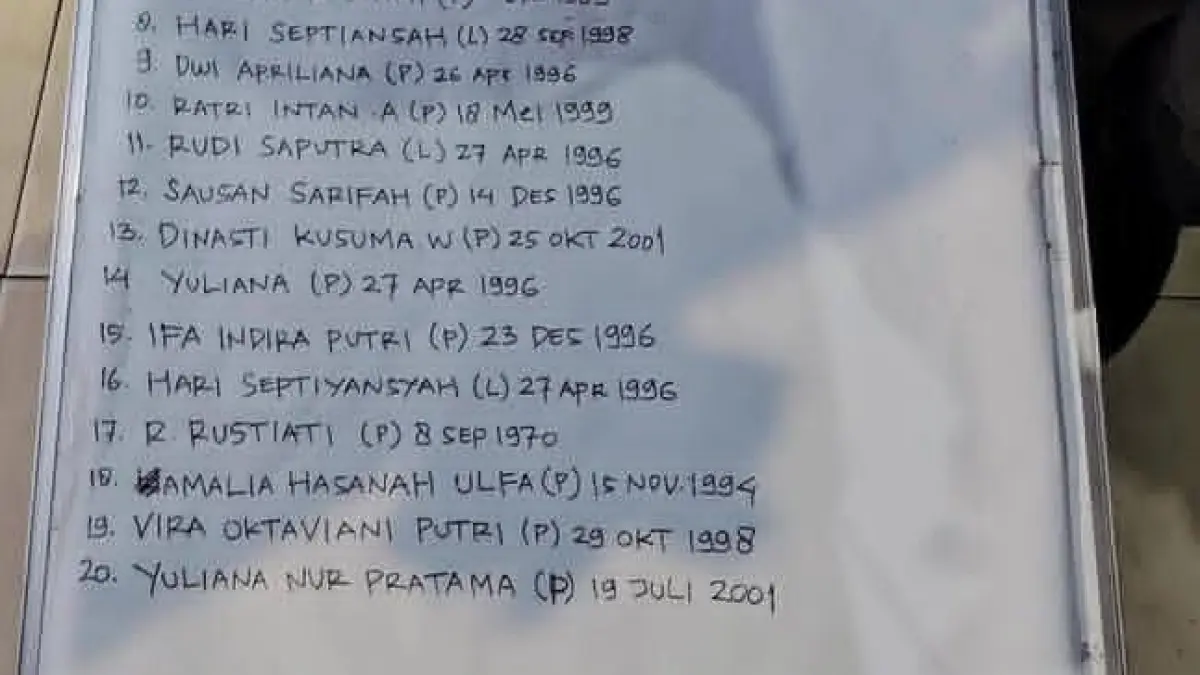 8. HARI SEPTIANSAH (L) 28 SEP 1998
9. DWI APRILIANA (P) 26 APR 1996
10. RATRI INTAN .A (P) 18 MEI 1999
11. RUDI SAPUTRA (L) 27 APR 1996
12. SAUSAN SARIFAH (P) 14 DES 1996
13. DINASTI KUSUMA W (P) 25 OKT 2001
14 YULIANA (P) 27 APR 1996
15. IFA INDIRA PUTRI (P) 23 DES 1996
16. HARI SEPTIYANSYAH (L) 27 APR 1996
17. R. RUSTIATI (P) 8 SEP 1970
18. AMALIA HASANAH ULFA (P) 15 NOV. 1994
19. VIRA OKTAVIANI PUTRI (P) 29 OKT 1998
20. YULIANA NUR PRATAMA (P) 19 JULI 2001